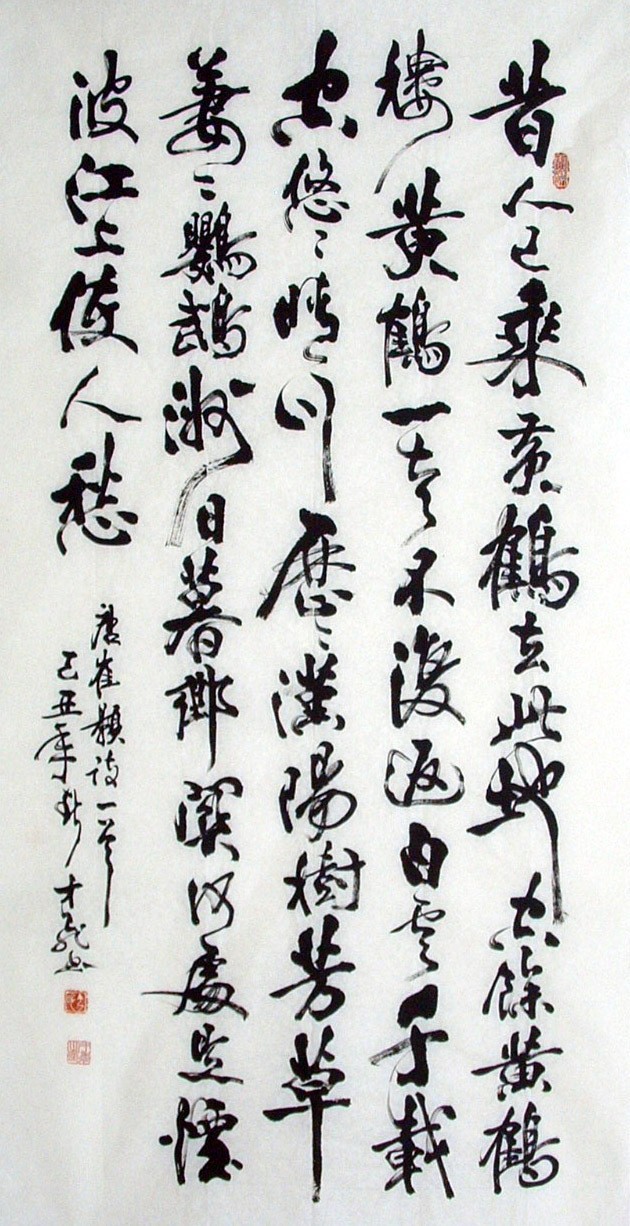 昔人已乘黄鶴去此地空餘黄鶴
樓黄鶴一去不復返白雲千載
空悠々晴川歷々漢陽樹芳草
萋々鸚鵡洲日暮鄉關何處是煙
波江上使人愁
唐崔顥詩一首
己丑年秋才書